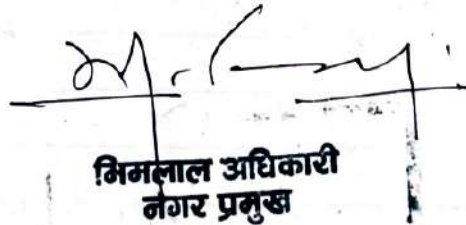 भिमलाल अधिकारी
नगर प्रमुख